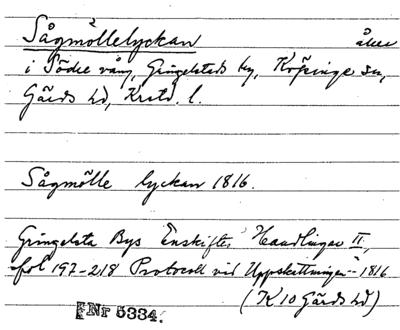 Sågmöllelyckan åker
i Södre vång, Gringelstads by, Köpinge sn,
Gärds hd, Krstd. l.
Sågmölle lyckan 1816.
Gringelsta Bys Enskiftes Handlingar II,
fol 197-218 Protocoll vid Uppskattningen - 1816
(K 10 Gärds hd)
Nr 5334.